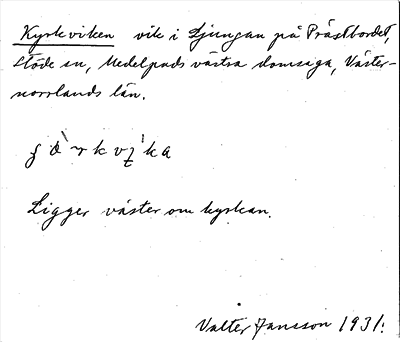 Kyrkviken vik i Ljungan på Prästbordet,
Stöde sn, Medelpads västra domsaga, Väster-
norrlands län.
Ligger väster om kyrkan.
Valter Jansson 1931.